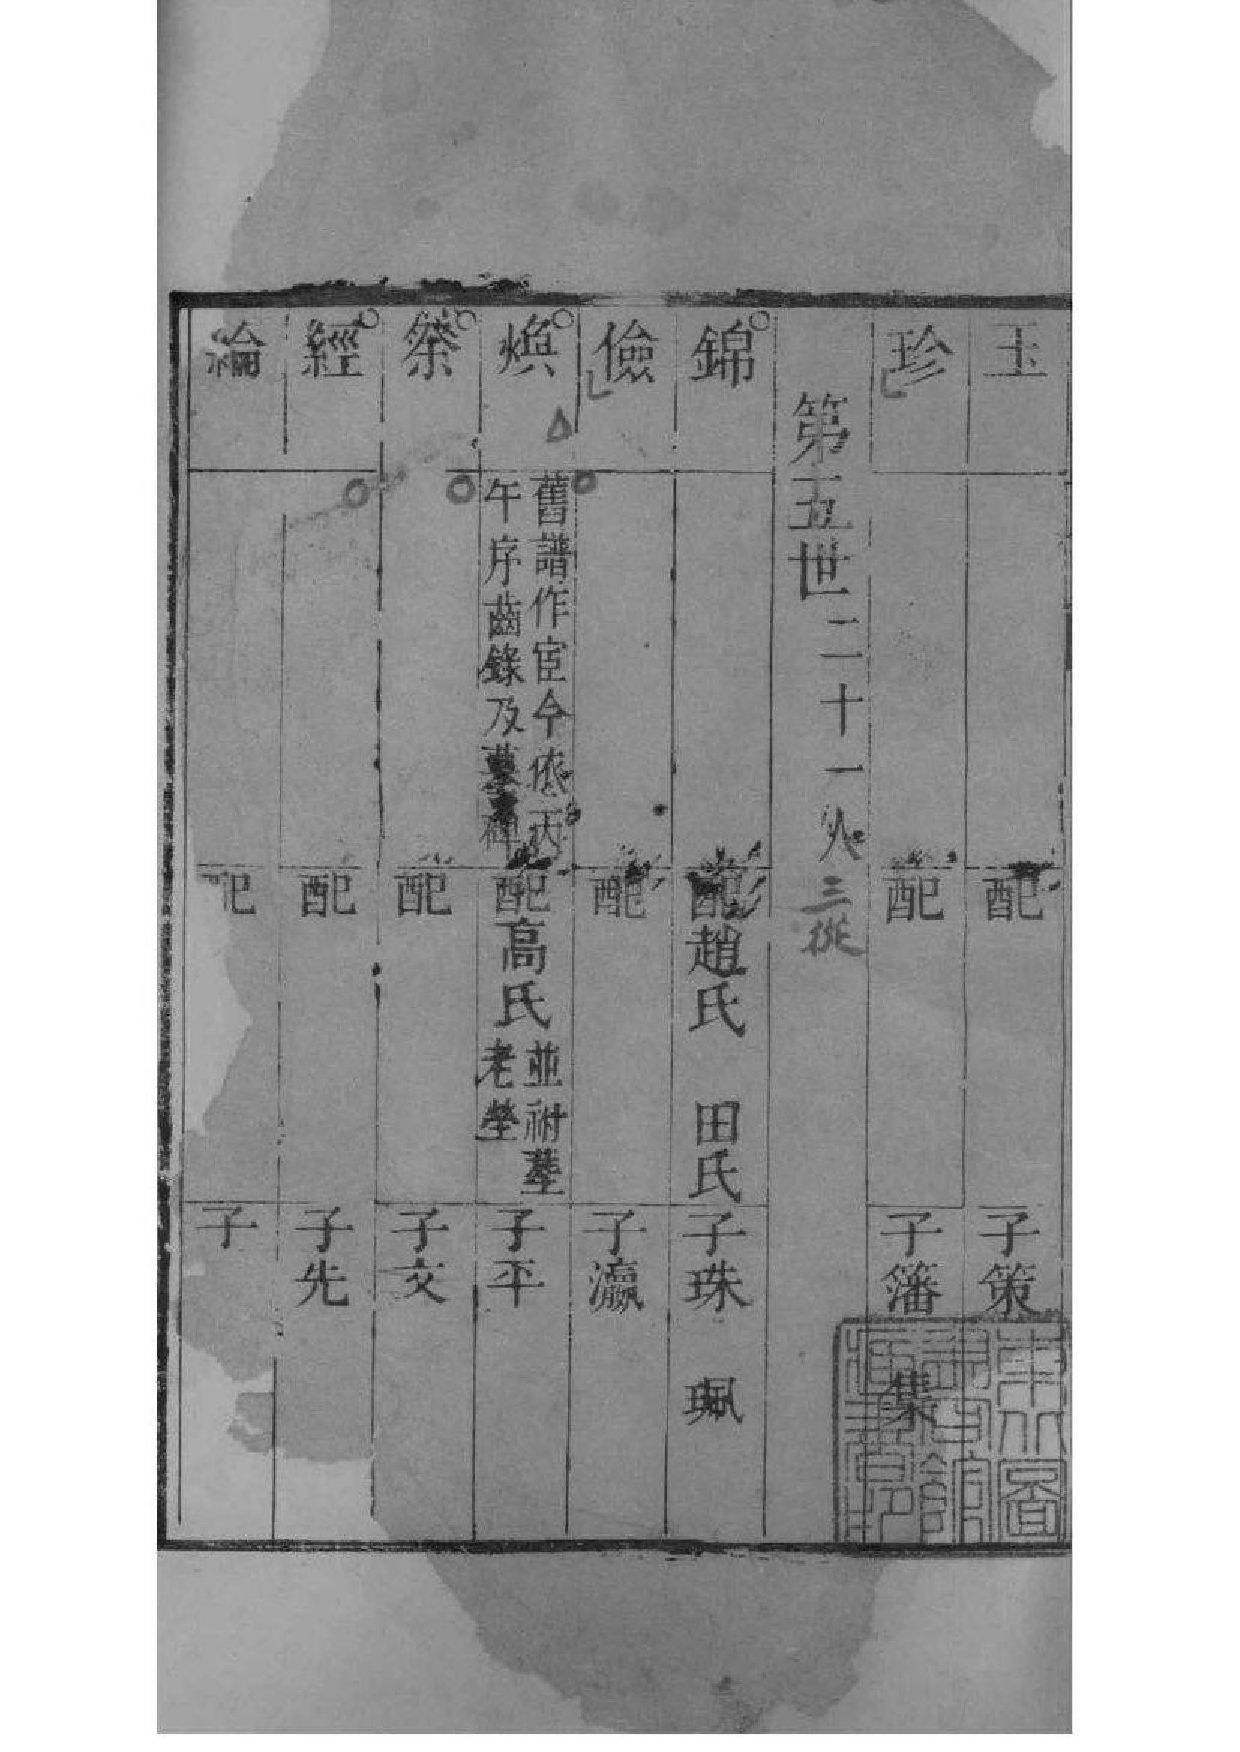 玉 配 子策
珍 配 子籓 集
第五世二十一人 三從
錦 配趙氏 田氏 子珠 珮
儉 配 子瀛
煥 舊譜作宦今依丙午序齒錄及墓碑 配高氏並祔塟老塋 子平
配 子文
經 配 子先
綸 配 子